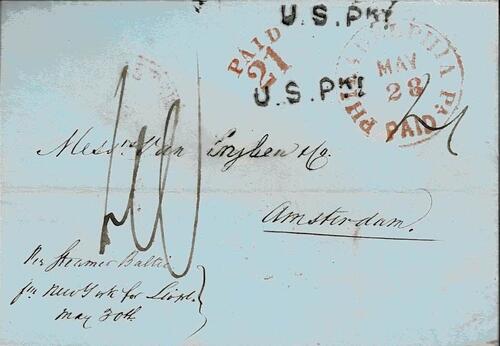 U.S.Pkt
PAID
21
U.S.Pkt
PHILADELPHIA Pa.
MAY
28
PAID
21
Messrs. Van & Co.
Amsterdam.
Per Steamer Baltic
fm New York for Livpl.
May 30th.